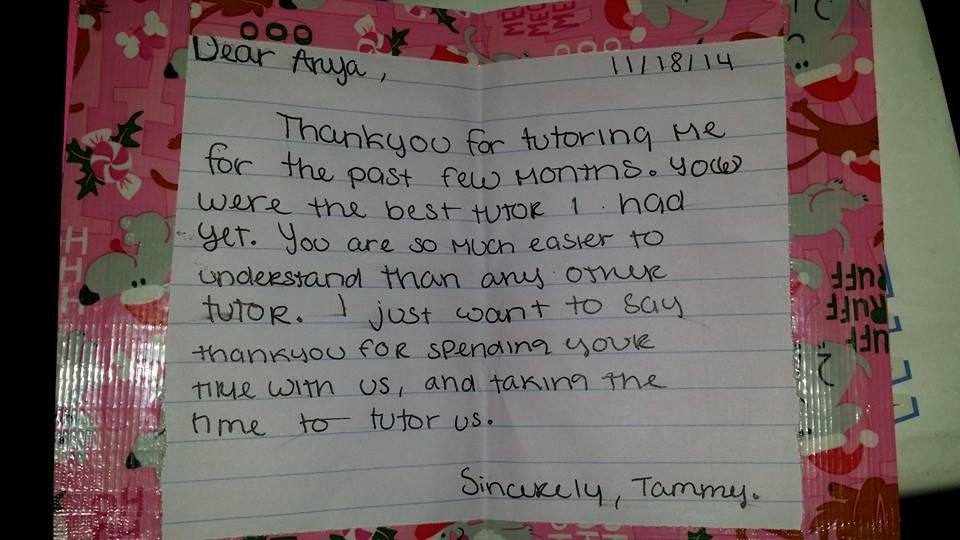 Dear Anya,
11/18/14
Thankyou for tutoring me
for the past few months. You
were the best tutor I had
yet. You are so much easier to
understand than any other
tutor. I just want to say
thankyou for spending your
time with us, and taking the
time to tutor us.
Sincerely, Tammy.
RUFF
RUFF
RUFF